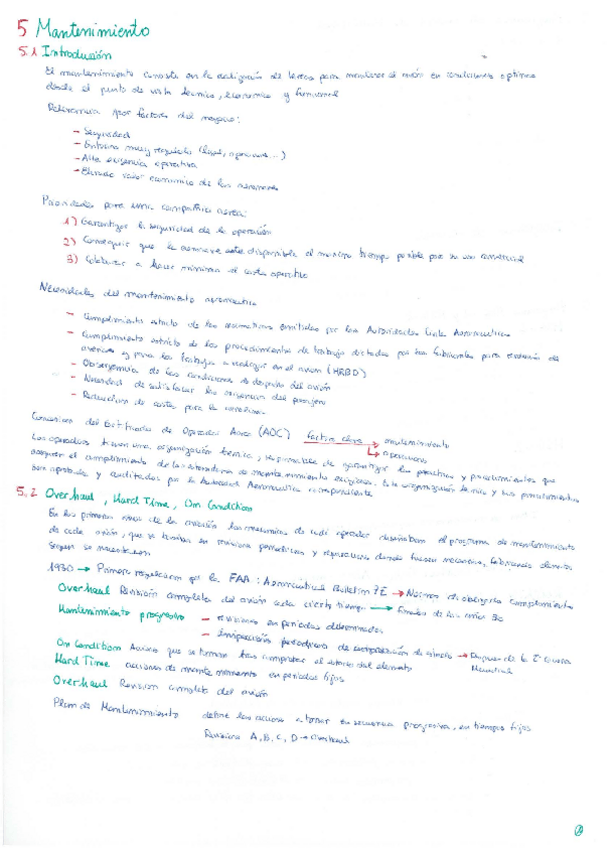 5 Mantenimiento
5.1 Introducción
El mantenimiento consiste en la realización de tareas para mantener el avión en condiciones óptimas
desde el punto de vista técnico, económico y funcional
Relevancia por factores del negocio:
- Seguridad
- Entorno muy regulado (legal, operacional...)
- Alta exigencia operativa
- Elevado valor económico de las aeronaves
Prioridades para una compañía aérea:
1) Garantizar la seguridad de la operación
2) Conseguir que la aeronave esté disponible el máximo tiempo posible para su uso comercial
3) Colaborar a hacer mínimo el coste operativo
Necesidades del mantenimiento aeronáutico
- Cumplimiento estricto de las normativas emitidas por las Autoridades Civiles Aeronáuticas
- Cumplimiento estricto de los procedimientos de trabajo dictados por los fabricantes para
aviónicos y para los trabajos a realizar en el avión (MRBD)
- Observancia de las condiciones de despacho del avión
- Necesidad de satisfacer las exigencias del pasajero
- Reducción de costes para la aerolínea
Concesión del Certificado de Operador Aéreo (AOC) Factores clave → mantenimiento
→ operaciones
Los operadores tienen una organización técnica, responsable de garantizar las prácticas y procedimientos que
aseguren el cumplimiento de los estándares de mantenimiento exigidos. Esta organización técnica y sus procedimientos
son aprobados y auditados por la Autoridad Aeronáutica correspondiente
5.2 Overhaul, Hard Time, On Condition
En los primeros años de la aviación los mecánicos de cada operador diseñaban el programa de mantenimiento
de cada avión, que se basaba en revisiones periódicas y reparaciones cuando fuesen necesarias,
según se necesitasen
1930 → Primera regulación por la FAA: Aeronautical Bulletin 7E → Normas de obligado cumplimiento
Overhaul Revisión completa del avión cada cierto tiempo → Finales de los años 30
Mantenimiento progresivo - revisiones en periodos determinados
- Inspección periódica de comprobación de → Después de la 2ª Guerra
Mundial
On Condition Acciones que se toman tras comprobar el estado del elemento
Hard Time acciones de mantenimiento en periodos fijos
Overhaul Revisión completa del avión
Plan de Mantenimiento define las acciones a tomar en secuencia progresiva, en tiempos fijos
Revisiones A, B, C, D → Overhaul